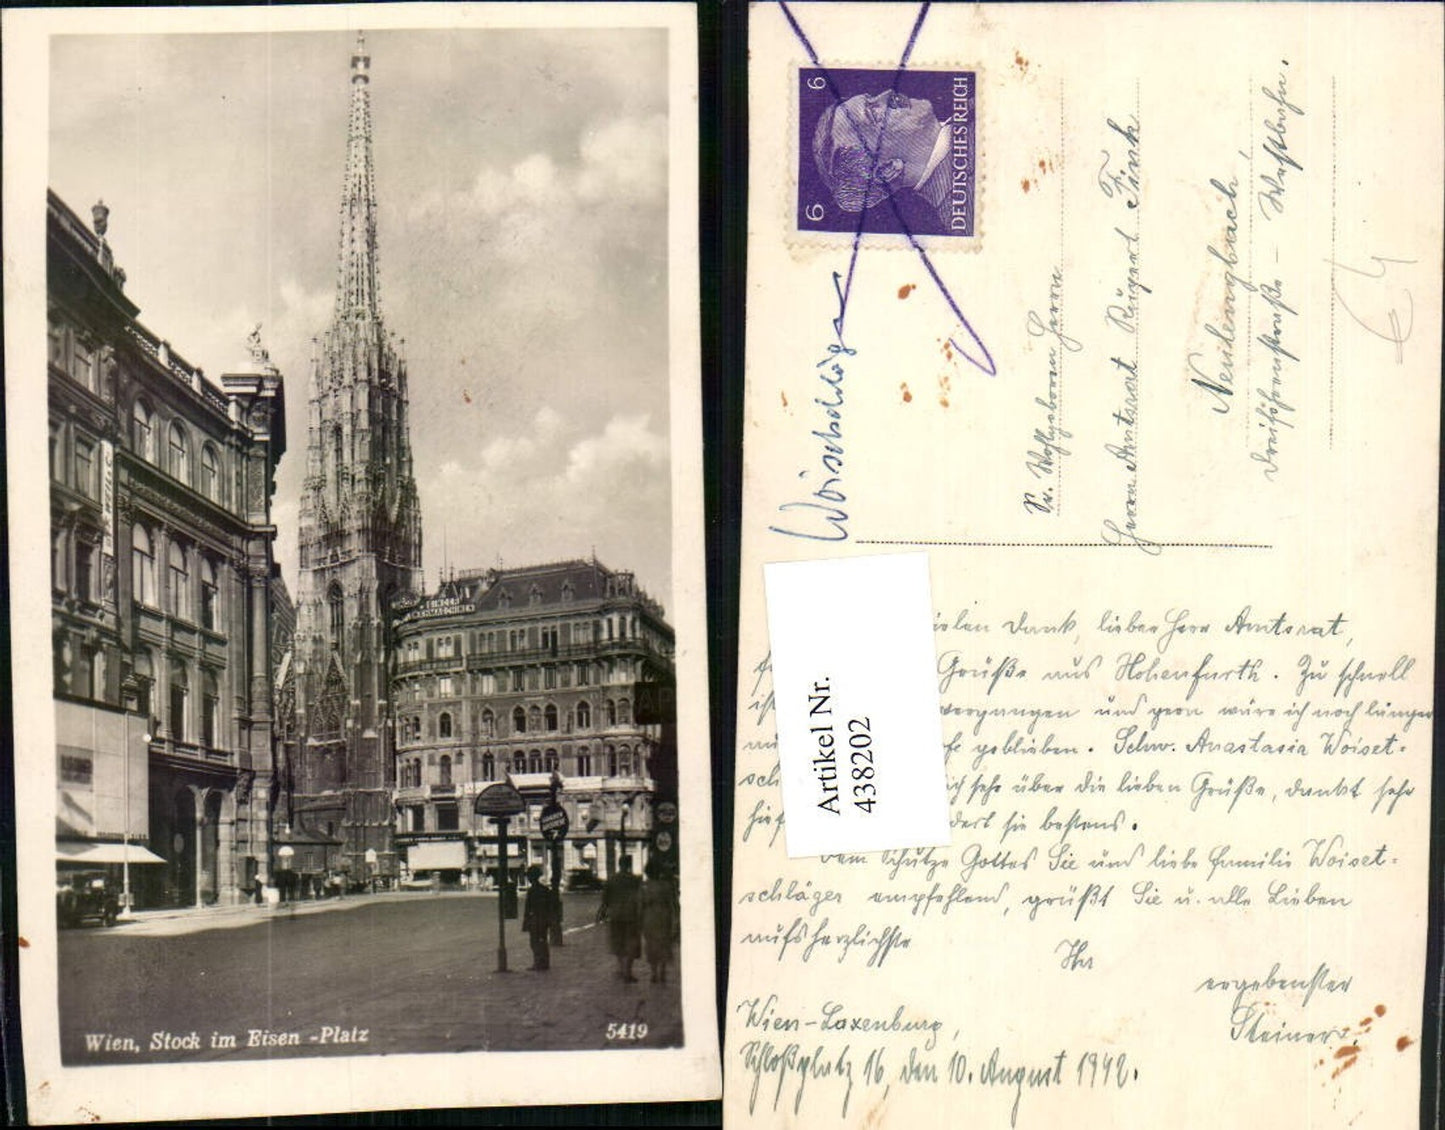 SINGER
NÄHMASCHINEN
Wien, Stock im Eisen -Platz
5419
6
6
DEUTSCHES REICH
Woisetschläger
Sr. Wohlgeboren Herrn
Herrn Amtsrat Rupert Fink
Neulengbach,
Dreiföhrenstraße - Westbahn.
Artikel Nr.
438202
vielen Dank, lieber Herr Amtsrat,
Grüße aus Hohenfurth. Zu schnell
ist vergangen und gern wäre ich noch länger
geblieben. Schw. Anastasia Woiset-
sch sich sehr über die lieben Grüße, dankt sehr
sie bestens.
Dem Schutze Gottes Sie und liebe Familie Woiset-
schläger empfehlend, grüßt Sie u. alle Lieben
aufs herzlichste
Ihr
ergebenster
Steiner.
Wien-Laxenburg,
Schloßplatz 16, den 10. August 1942.